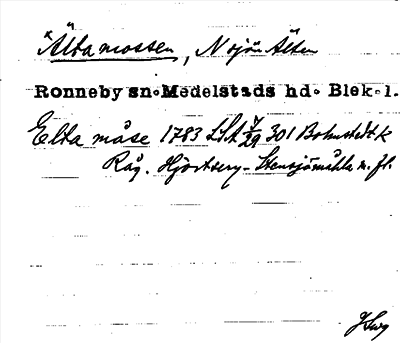 *Ältamossen, N sjön Älten
Ronneby sn. Medelstads hd. Blek. l.
Elta måse 1783 LSA 301 Bohustedt. k
Råg. Hjortserg - Stensjömåhla m. fl.